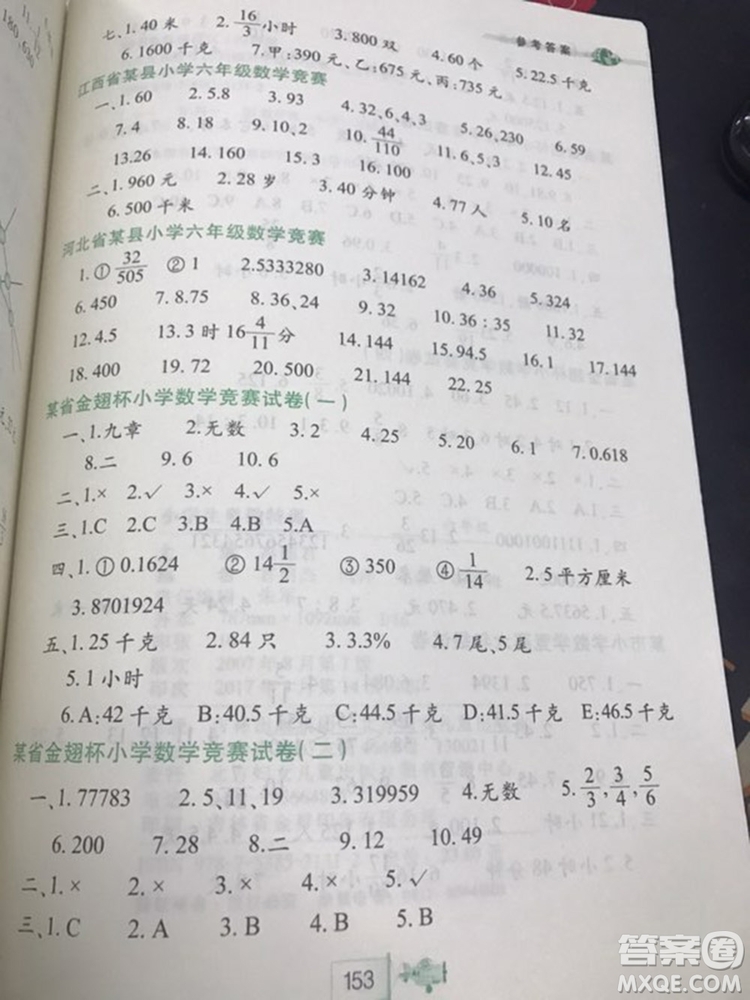 参考答案
七、1.40 米 2. 16/3 小时 3.800 双 4.60 个 5.22.5 千克
6.1600 千克 7.甲:390 元、乙:675 元、丙:735 元
江西省某县小学六年级数学竞赛
一、1.60 2.5.8 3.93 4.32、6、4、3 5.26、230 6.59
7.4 8.18 9.10、2 10. 44/110 11.6、5、3 12.45
13.26 14.160 15.3 16.100
二、1.960 元 2.28 岁 3.40 分钟 4.77 人 5.10 名
6.500 千米
河北省某县小学六年级数学竞赛
1.① 32/505 ② 1 2.5333280 3.14162 4.36 5.324
6.450 7.8.75 8.36、24 9.32 10.36:35 11.32
12.4.5 13.3 时 16 4/11 分 14.144 15.94.5 16.1 17.144
18.400 19.72 20.500 21.144 22.25
某省金翅杯小学数学竞赛试卷(一)
一、1.九章 2.无数 3.2 4.25 5.20 6.1 7.0.618
8.二 9.6 10.6
二、1.× 2.√ 3.× 4.√ 5.×
三、1.C 2.C 3.B 4.B 5.A
四、1.① 0.1624 ② 14 1/2 ③ 350 ④ 1/14 2.5 平方厘米
3.8701924
五、1.25 千克 2.84 只 3.3.3% 4.7 尾、5 尾
5.1 小时
6.A:42 千克 B:40.5 千克 C:44.5 千克 D:41.5 千克 E:46.5 千克
某省金翅杯小学数学竞赛试卷(二)
一、1.77783 2.5、11、19 3.319959 4.无数 5. 2/3、3/4、5/6
6.200 7.28 8.二 9.12 10.49
二、1.× 2.× 3.× 4.× 5.√
三、1.C 2.A 3.B 4.B 5.B
153
答案圈
MXQE.COM